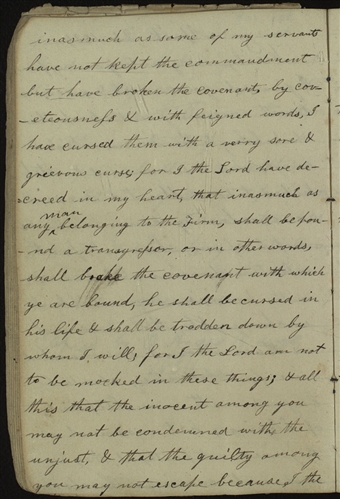 inasmuch as some of my servants
have not kept the commandment
but have broken the covenant, by cov-
-eteousness & with feigned words, I
have cursed them with a verry sore &
grievous curse; for I the Lord have de-
-creed in my heart, that inasmuch as
man
any belonging to the Firm, shall be fou-
-nd a transgressor, or in other words,
shall brake the covenant with which
ye are bound, he shall be cursed in
his life & shall be trodden down by
whom I will; for I the Lord am not
to be mocked in these things; & all
this that the inocent among you
may not be condemned with the
unjust, & that the guilty among
you may not escape because I the